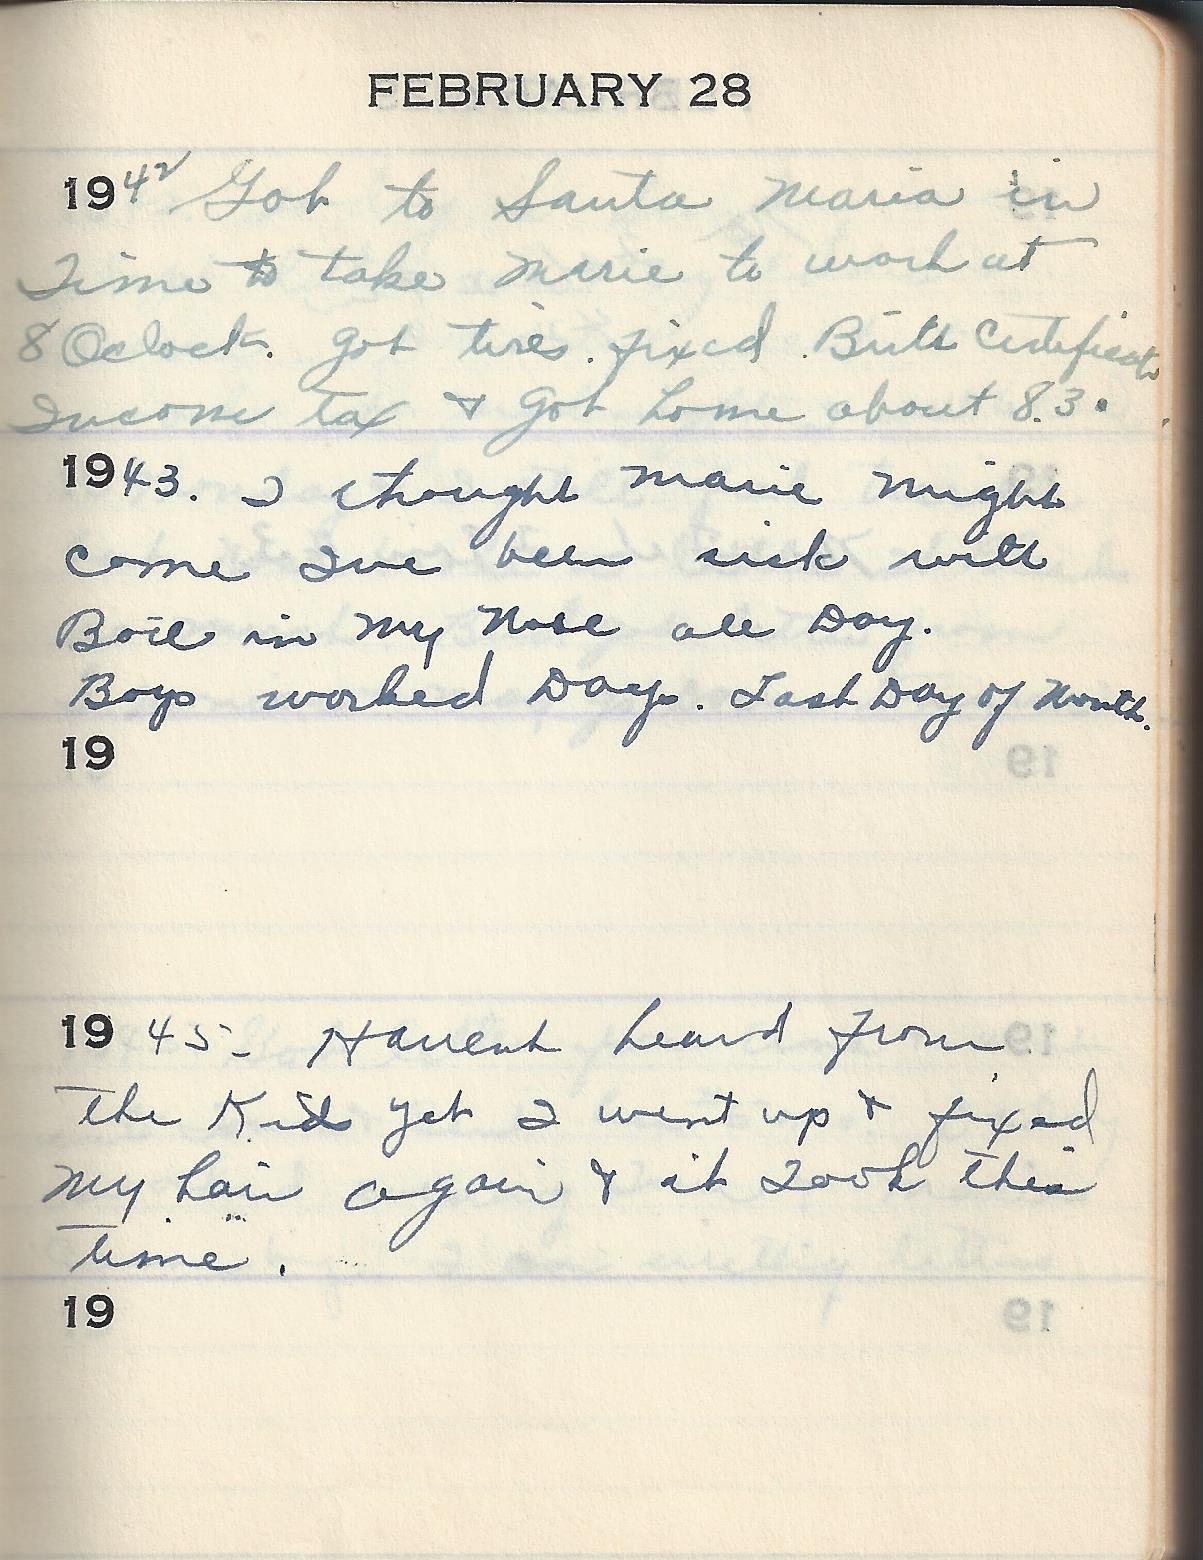 FEBRUARY 28
1942 Got to Santa Maria in
Time to take Marie to work at
8 Oclock. got tires. fixed. Birth Certificate
Income tax & got home about 8.30
1943. I thought Marie might
come Ive been sick with
Boil in my Nose all Day.
Boys worked Days. Last Day of Month.
19
1945- Havent heard from
the Kids yet I went up & fixed
my hair again & it Took this
time.
19